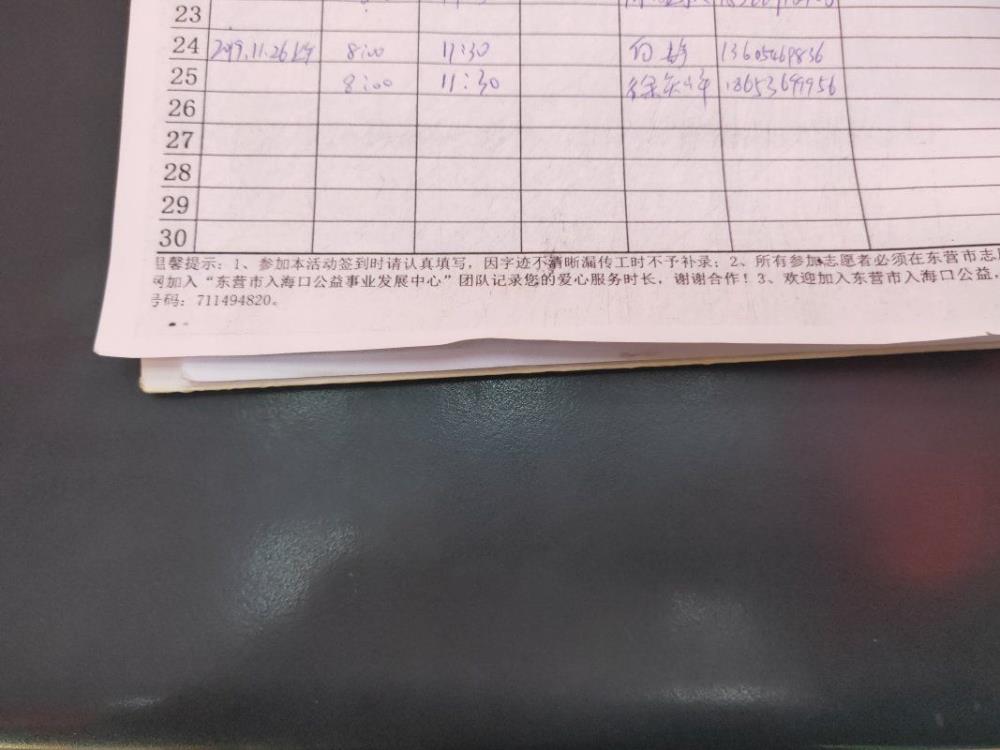 23
24 2019.11.26上午 8:00 11:30 13605469836
25 8:00 11:30 18653699956
26
27
28
29
30
温馨提示：1、参加本活动签到时请认真填写，因字迹不清晰漏传工时不予补录；2、所有参加志愿者必须在东营市志
网加入“东营市入海口公益事业发展中心”团队记录您的爱心服务时长，谢谢合作！3、欢迎加入东营市入海口公益，
号码：711494820。